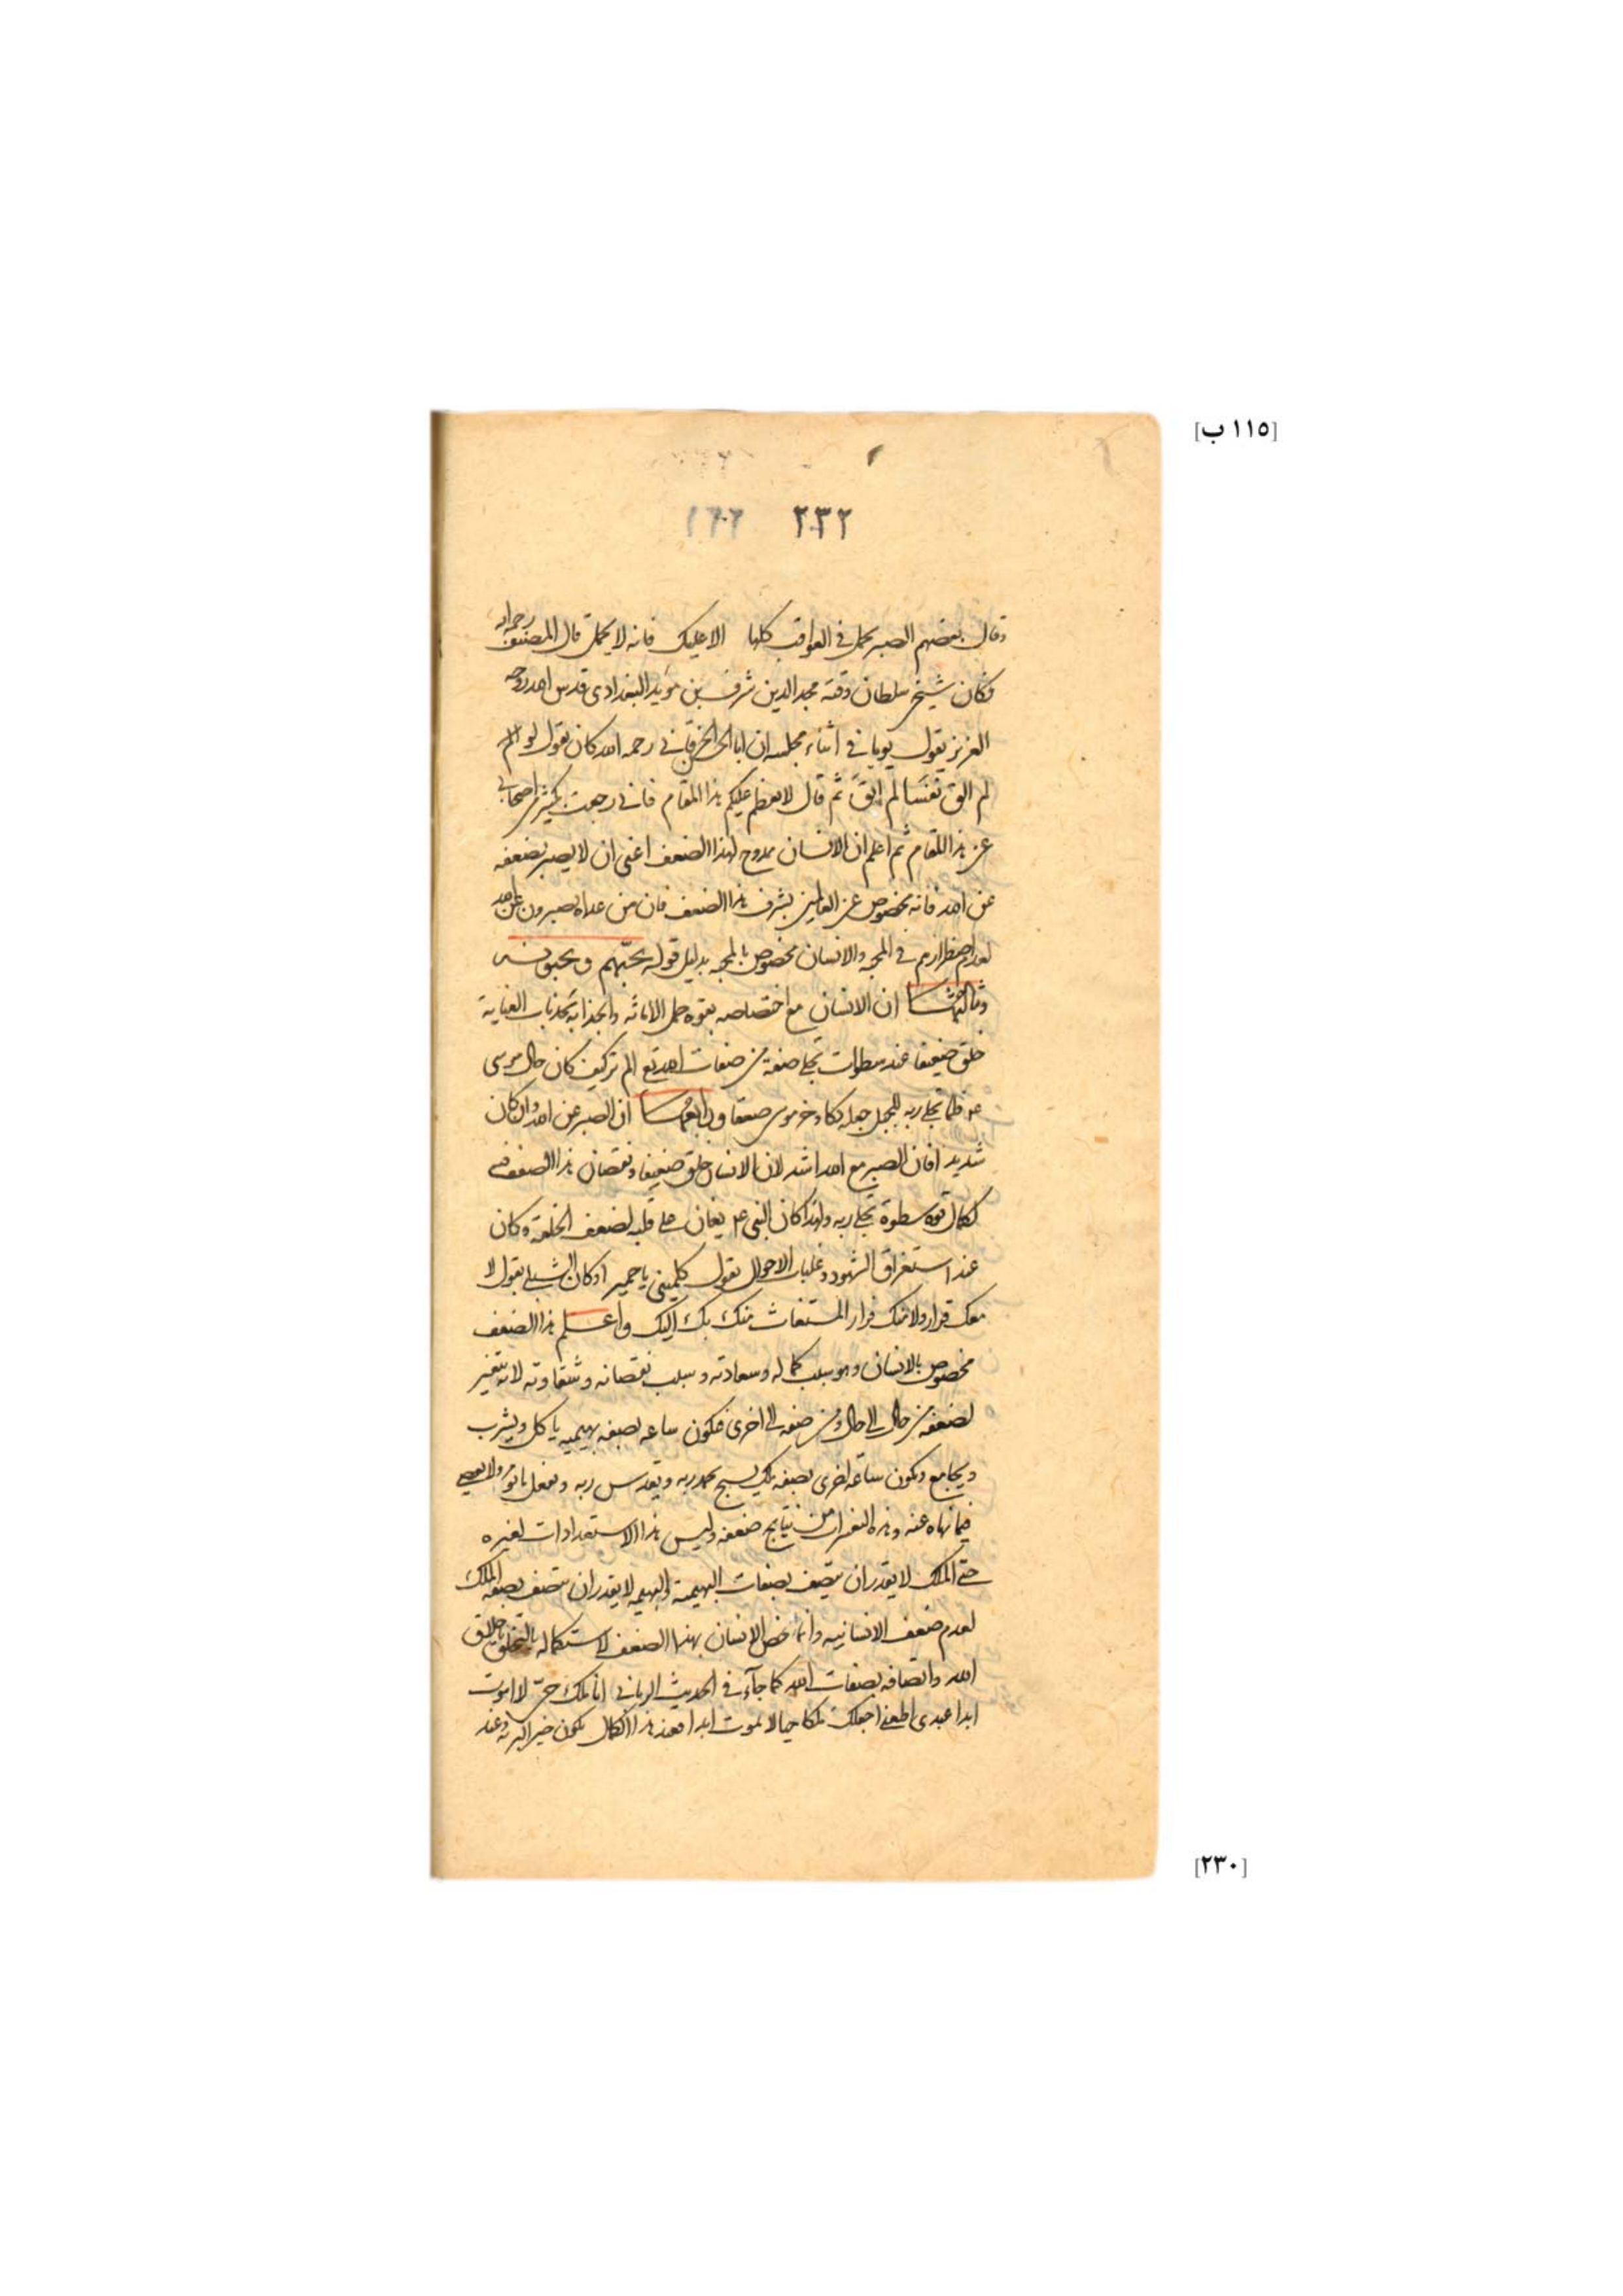 [١١٥ ب]
٢٣٢ ١٦٦
وقال بعضهم الصبر يحمل في المواقف كلها الا عليك فانه لا يحمل قال المصنف رحمه الله
فكان شيخ سلطان وقته مجد الدين شرف بن مؤيد البغدادى قدس الله روحه
العزيز يقول يوما في اثناء مجلسه ان ابا الحسن الخرقاني رحمه الله كان يقول لو
لم الق نفسا لم ابق ثم قال لا يعظم عليكم هذا المقام فاني رجعت بكثير اصحابى
عن هذا المقام ثم اعلم ان الانسان ممدوح لهذا الضعف اعنى ان لا يصبر بضعفه
عن الله فانه مخصوص عن العالمين بشرف هذا الضعف فان من عداه يصبرون عن الله
لعدم اضطرارهم في المحبة والانسان مخصوص بالمحبة بدليل قوله يحبهم ويحبونه
وثالثها ان الانسان مع اختصاصه بقوة حمل الامانة وانجذابه بجذبات العناية
خلق ضعيفا عند سطوات تجلى صفة من صفات الله تع الم تر كيف كان حال موسى
عم فلما تجلى ربه للجبل جعله دكا وخر موسى صعقا ورابعها ان الصبر عن الله وان كان
شديدا فان الصبر مع الله اشد لان الانسان خلق ضعيفا ونقصان هذا الضعف
لكمال قوة سطوة تجلى ربه ولهذا كان النبى عم يغان على قلبه لضعف الخلقة وكان
عند استغراق الشهود وغلبات الاحوال يقول كلمينى يا حميرا وكان الشبلى يقول لا
معك قرار ولا منك فرار المستغاث منك بك اليك واعلم هذا الضعف
مخصوص بالانسان وهو سبب كماله وسعادته وسبب نقصانه وشقاوته لانه يتغير
لضعفه من حال الى حال ومن صفة الى اخرى فيكون ساعة بصفة بهيمية ياكل ويشرب
ويجامع ويكون ساعة اخرى بصفة ملك يسبح بحمد ربه ويقدس ربه ويفعل ما يؤمر ولا يعصى
فيما نهاه عنه وهذه التغيرات من نتايج ضعفه وليس هذا الاستعدادات لغيره
حتى الملك لا يقدر ان يتصف بصفات البهيمة والبهيمة لا يقدر ان يتصف بصفة الملك
لعدم ضعف الانسانية وانما خص الانسان بهذا الضعف لاستكماله بالتخلق باخلاق
الله واتصافه بصفات الله كما جاء في الحديث الربانى انا ملك حى لا اموت
ابدا عبدى اطعنى اجعلك ملكا حيا لا تموت ابدا فعند هذا الكمال يكون خير البرية وعند
[٢٣٠]